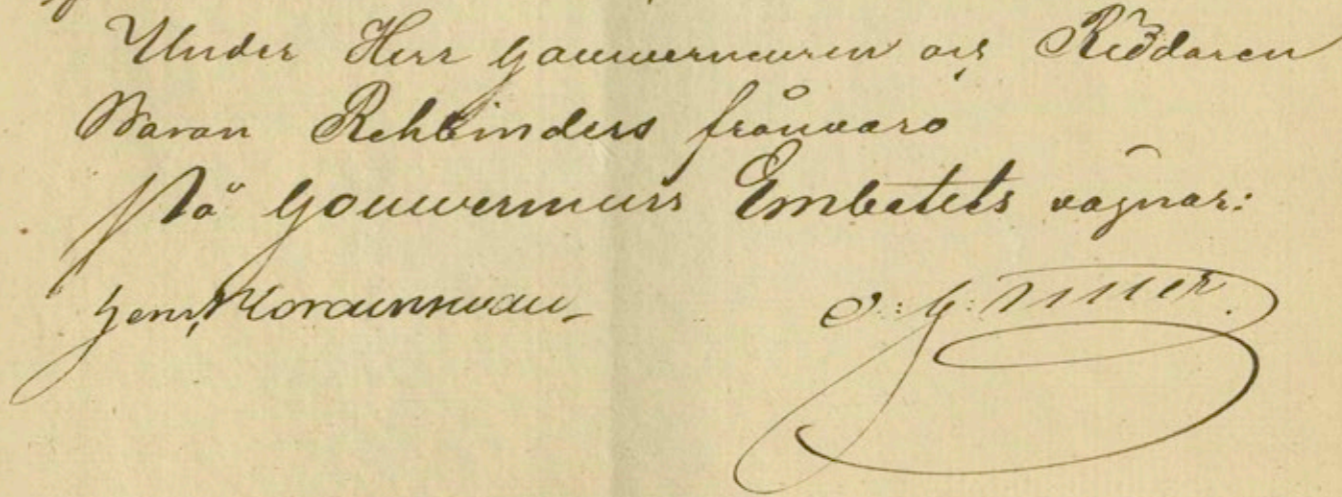 Under Herr Gouverneuren och Riddaren
Baron Rehbinders frånvaro
På Gouverneurs Embetets vägnar: